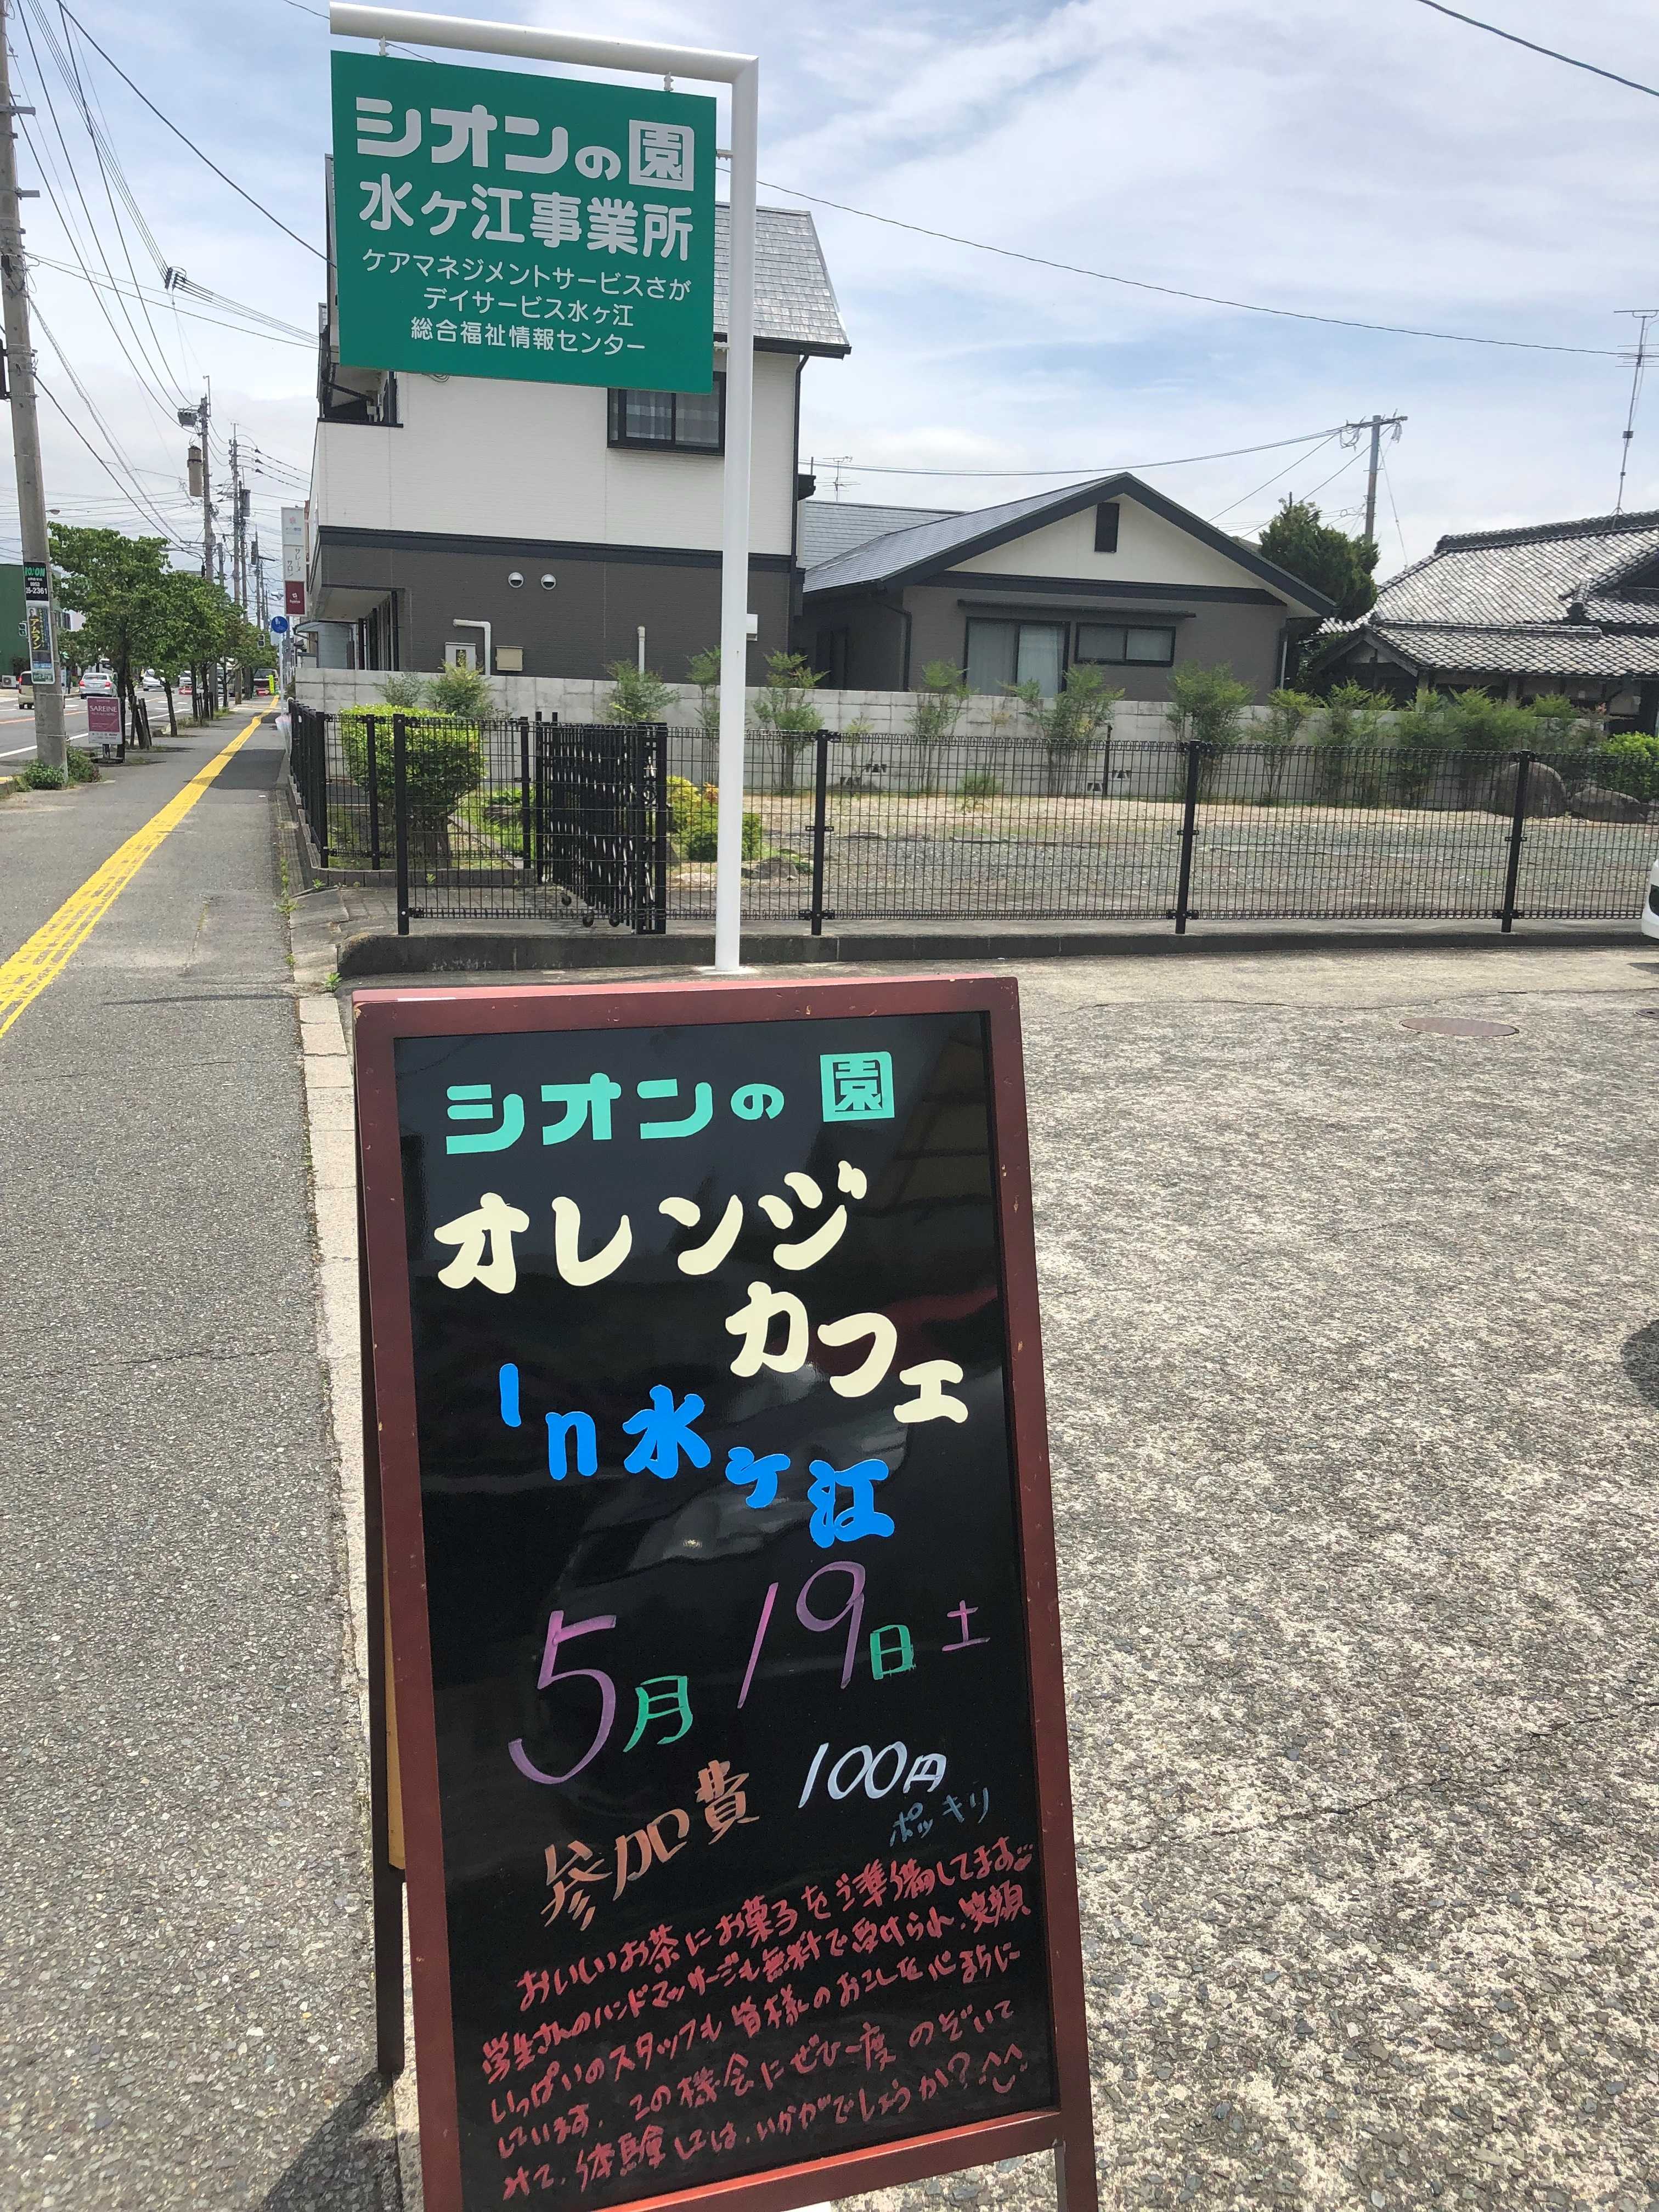 シオンの園
水ヶ江事業所
ケアマネジメントサービスさが
デイサービス水ヶ江
総合福祉情報センター
SAREINE
シオンの園
オレンジ
カフェ
In水ヶ江
5月19日土
参加費 100円
ポッキリ
おいしいお茶にお菓子をご準備してます
学生さんのハンドマッサージも無料で受けられ、笑顔
いっぱいのスタッフも皆様のおこしを心まちに
しています。この機会にぜひ一度のぞいて
みて、体験しては、いかがでしょうか?